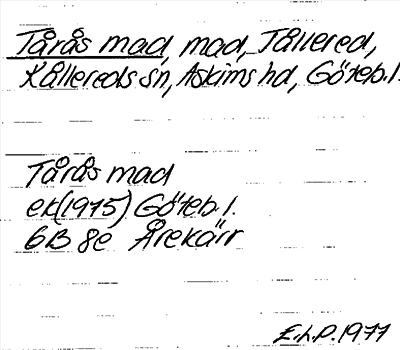 Tårås mad, mad, Tållered,
Kållereds sn, Askims hd, Göteb. l.
Tårås mad
ek (1975) Göteb. l.
6B 8e Årekärr
E.L.P. 1977